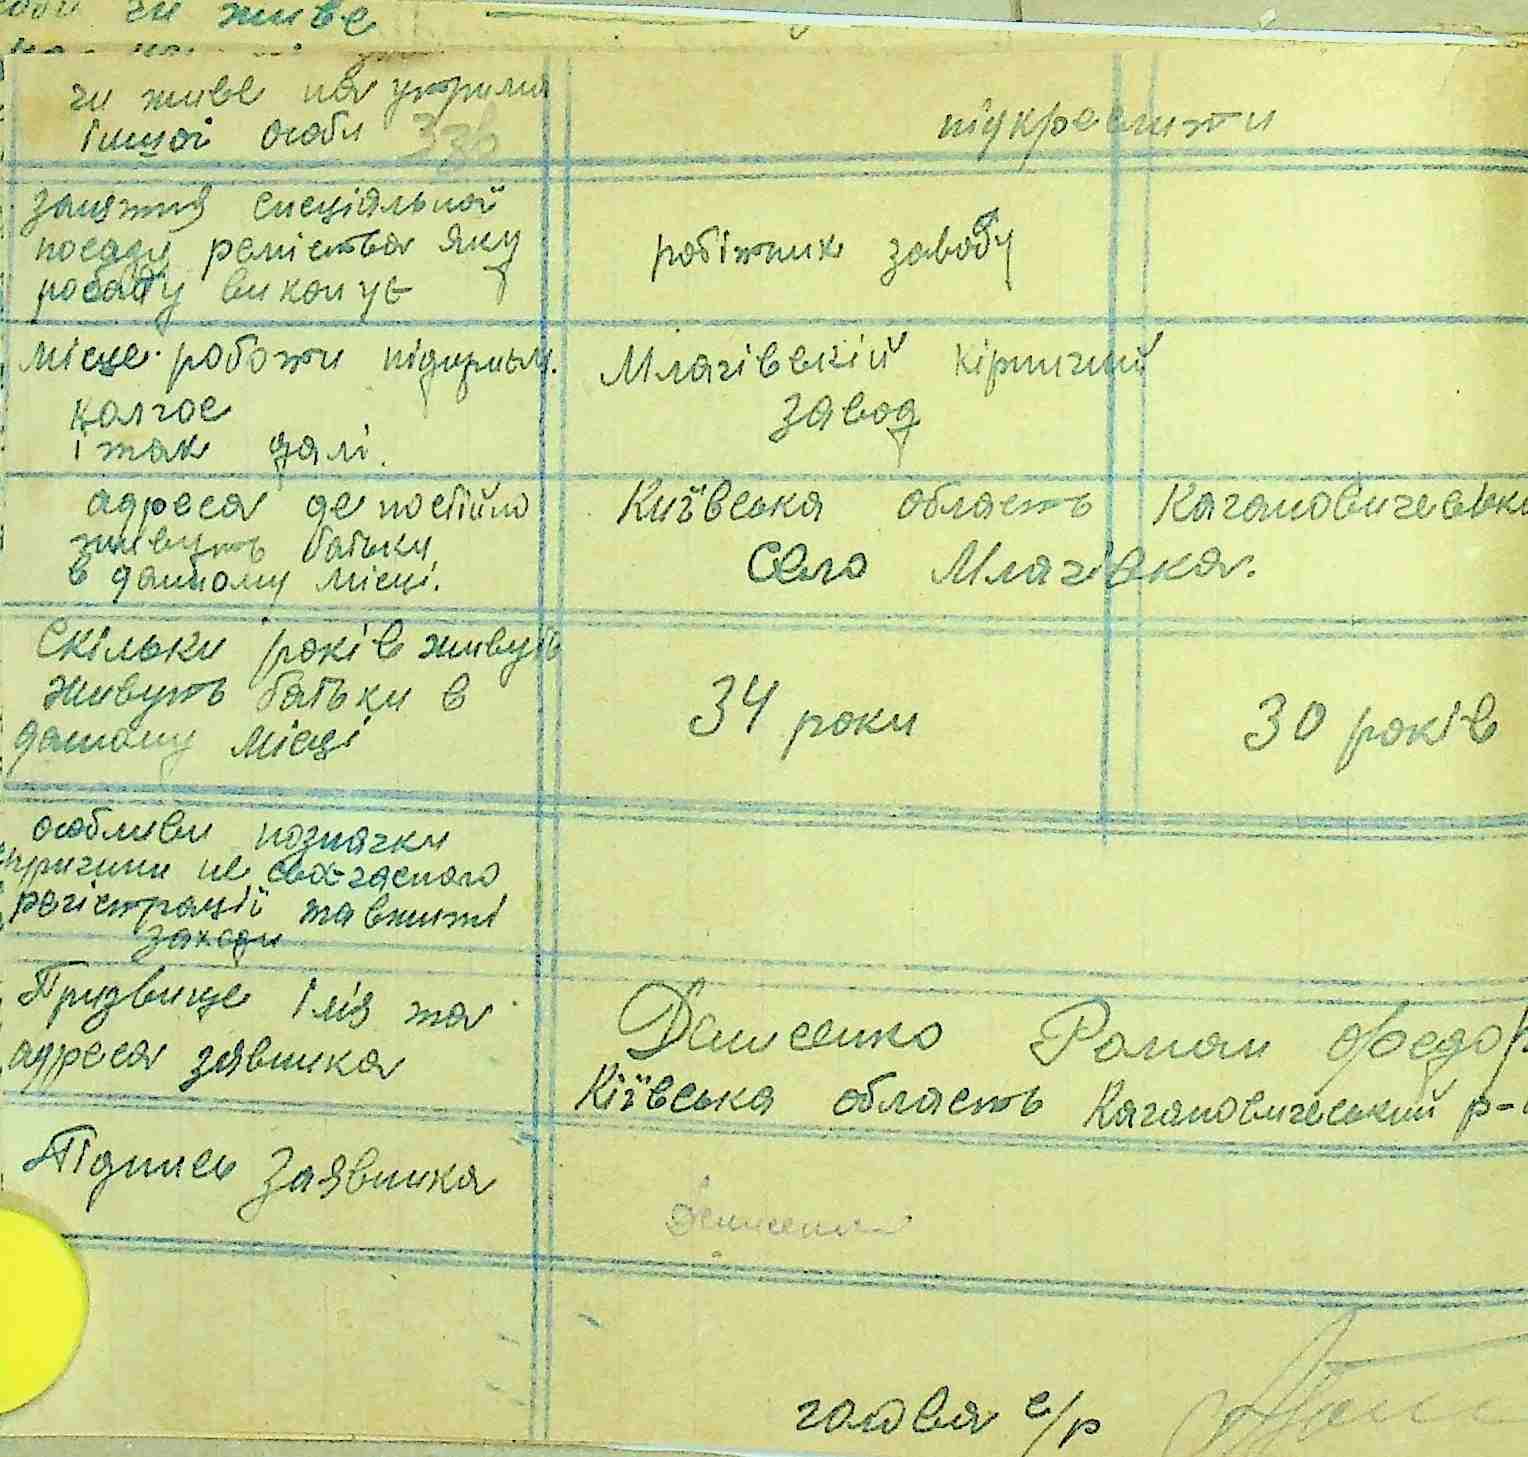 чи живе
чи живе на утрим
іншої особи
підкреслити
заняття спеціальної
посади ремества яку
рободу виконує
робітник заводу
місце роботи підприєм.
колгос
і так далі.
Млачівскій кірпичний
завод
адреса де постійно
живуть батьки
в данному місці.
Київська область Кагановичевськи
Село Млачівка.
Скільки років живуть
живуть батьки в
данному місці
34 роки
30 років
особливи познячки
причини не своєчасного
регістрації та вжиті
заходи
Прузвище імя та
адреса заявника
Денисенко Роман Федор
Кіївська область Кагановичеський р-н
Підпись Заявника
Денисенко
голова с/р